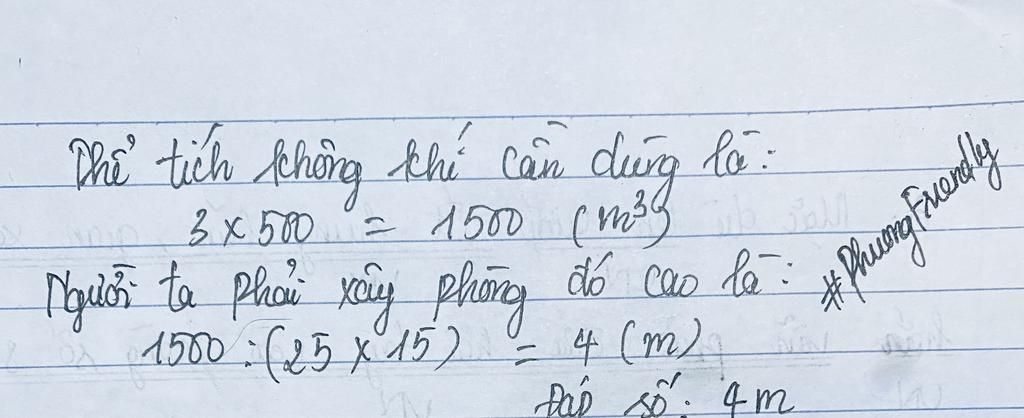 Thể tích không khí cần dùng là:
3 x 500 = 1500 (m³)
Người ta phải xây phòng đó cao là:
1500 : (25 x 15) = 4 (m)
Đáp số: 4m
#PhuongFriendly